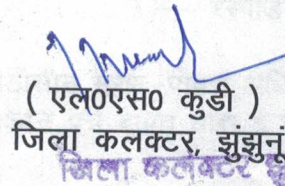 ( एल0एस0 कुडी )
जिला कलक्टर, झुंझुनूं
जिला कलक्टर